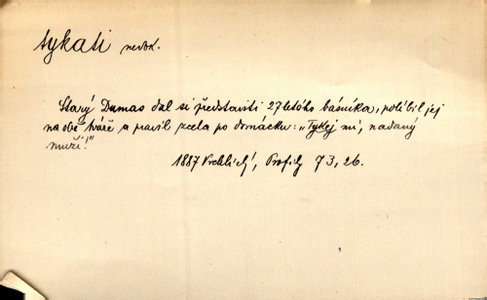 tykati nedok.
Starý Dumas dal si představiti 27letého básníka, políbil jej
na obě tváře a pravil zcela po domácku: „Tykej mi, nadaný
muži!"
1887 Vrchlický, Profily 73, 26.